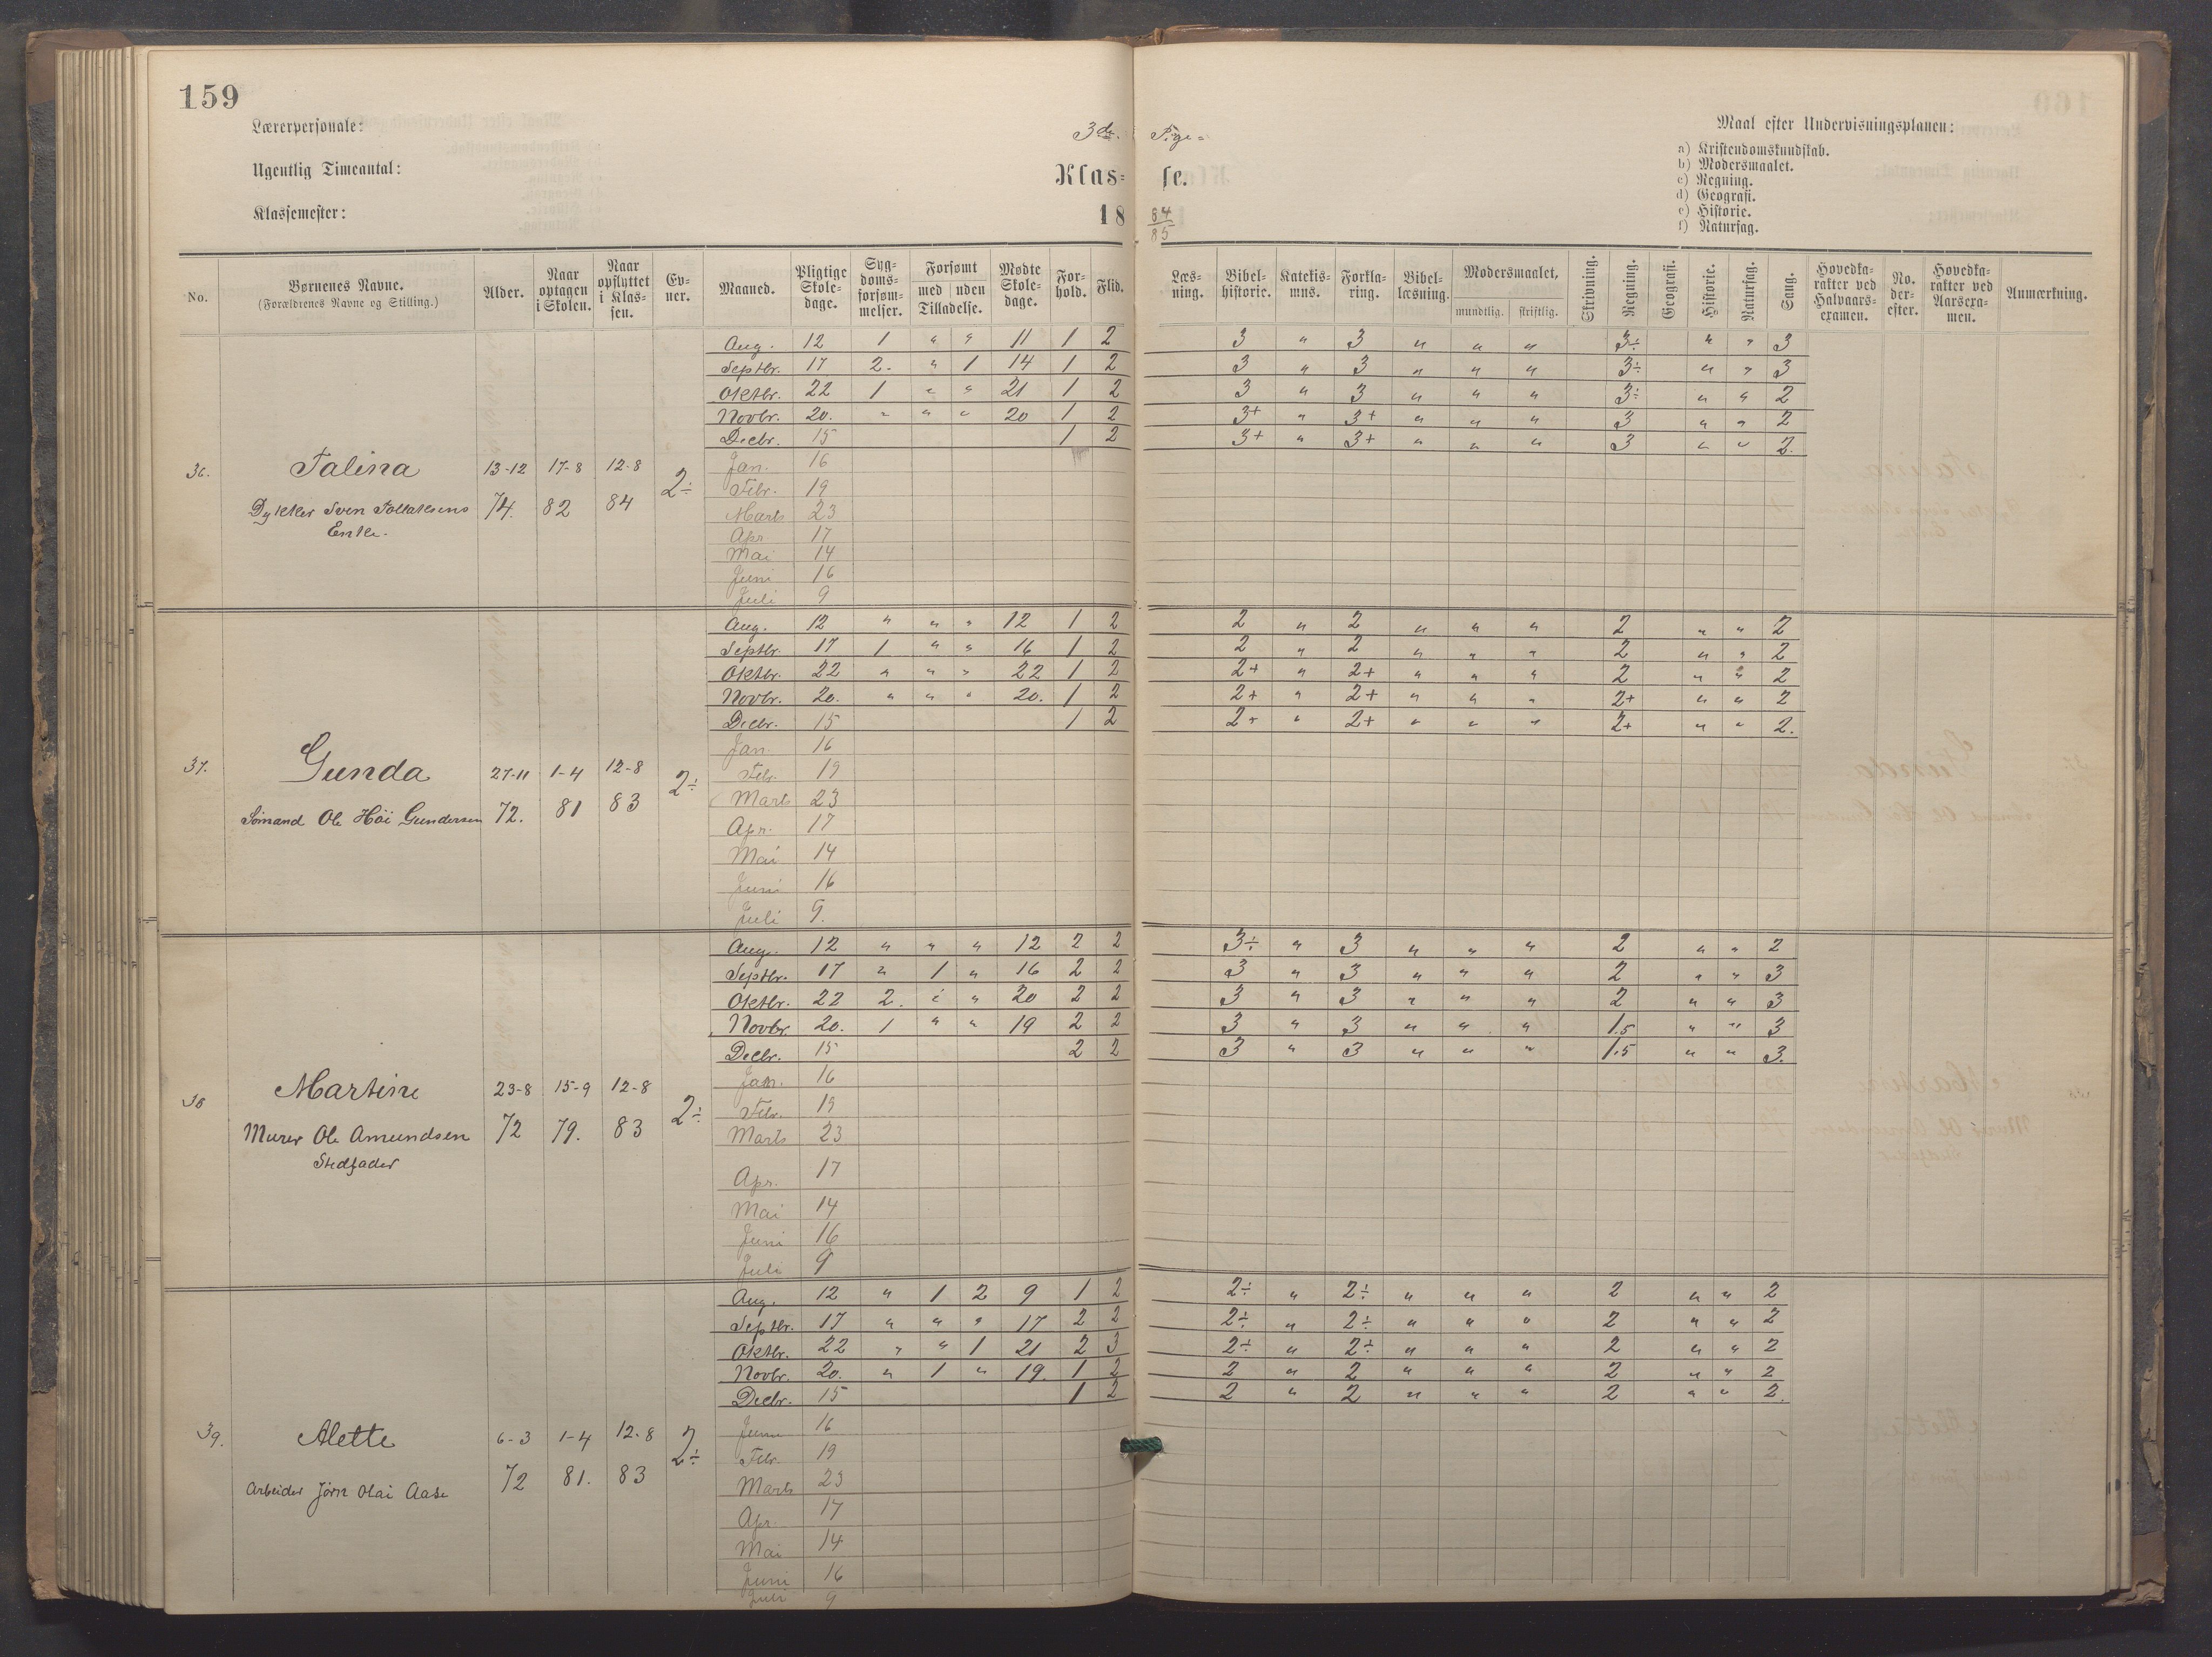 159
Lærerpersonale:
3die Pige-
Maal efter Undervisningsplanen:
a) Kristendomskundskab.
b) Modersmaalet.
c) Regning.
d) Geografi.
e) Historie.
f) Naturfag.
Ugentlig Timeantal:
Klas= se.
Klassemester:
18 84/85
No. Børnenes Navne. (Forældrenes Navne og Stilling.) Alder. Naar optagen i Skolen. Naar opflyttet i Klassen. Evner. Maaned. Pligtige Skoledage. Sygdomsforsømmelser. Forsømt med uden Tilladelse. Mødte Skoledage. Forhold. Flid. Læsning. Bibelhistorie. Katekismus. Forklaring. Bibellæsning. Modersmaalet, mundtlig. skriftlig. Skrivning. Regning. Geografi. Historie. Naturfag. Sang. Hovedkarakter ved Halvaarsexamen. No. derefter. Hovedkarakter ved Aarsexamen. Anmærkning.
Aug. 12 1 " " 11 1 2 3 " 3 " " " 3÷ " " 3
Septbr. 17 2. " 1 14 1 2 3 " 3 " " " 3÷ " " 3
Oktbr. 22 1 " " 21 1 2 3 " 3 " " " 3÷ " " 2
Novbr. 20. " " " 20 1 2 3+ " 3+ " " " 3 " " 2
Decbr. 15 1 2 3+ " 3+ " " " 3 " " 2.
36. Talina 13-12 74. 17-8 82 12-8 84 2÷
Dykker Sven Tollaksens
Enke.
Jan. 16
Febr. 19
Marts 23
Apr 17
Mai 14
Juni 16
Juli 9
Aug. 12 " " " 12 1 2 2 " 2 " " " 2 " " 2
Septbr. 17 1 " " 16 1 2 2 " 2 " " " 2 " " 2
Oktbr. 22 " " " 22 1 2 2+ " 2+ " " " 2 " " 2
Novbr. 20. " " " 20. 1 2 2+ " 2+ " " " 2+ " " 2
Decbr. 15 1 2 2+ " 2+ " " " 2+ " " 2.
37. Gunda 27-11 72. 1-4 81 12-8 83 2÷
Sømand Ole Höi Gundersen
Jan. 16
Febr. 19
Marts 23
Apr. 17
Mai 14
Juni 16
Juli 9.
Aug. 12 " " " 12 2 2 3÷ " 3 " " " 2 " " 2
Septbr. 17 " 1 " 16 2 2 3 " 3 " " " 2 " " 3
Oktbr. 22 2. " " 20 2 2 3 " 3 " " " 2 " " 3
Novbr. 20. 1 " " 19 2 2 3 " 3 " " " 1.5 " " 3
Decbr. 15 2 2 3 " 3 " " " 1.5 " " 3.
38 Martine 23-8 72 15-9 79. 12-8 83 2÷
Murer Ole Amundsen
Stedfader
Jan. 16
Febr. 19
Marts 23
Apr. 17
Mai 14
Juni 16
Juli 9
Aug. 12 " 1 2 9 1 2 2÷ " 2÷ " " " 2 " " 2
Septbr. 17 " " " 17 2 2 2÷ " 2÷ " " " 2 " " 2
Oktbr. 22 " " 1 21 2 3 2÷ " 2÷ " " " 2 " " 2
Novbr. 20. " 1 " 19. 1 2 2 " 2 " " " 2 " " 2
Decbr. 15 1 2 2 " 2 " " " 2 " " 2.
39. Alette 6-3 72 1-4 81. 12-8 83 2÷
Arbeider Jörn Olai Aase
16
Febr. 19
Marts 23
Apr. 17
Mai 14
Juni 16
Juli 9